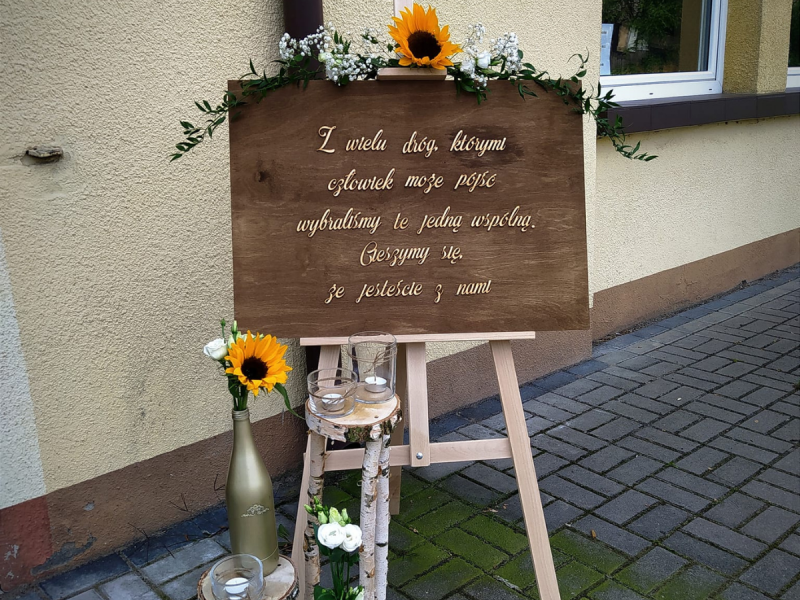 Z wielu dróg, którymi
człowiek może pójść
wybraliśmy tę jedną wspólną.
Cieszymy się,
że jesteście z nami